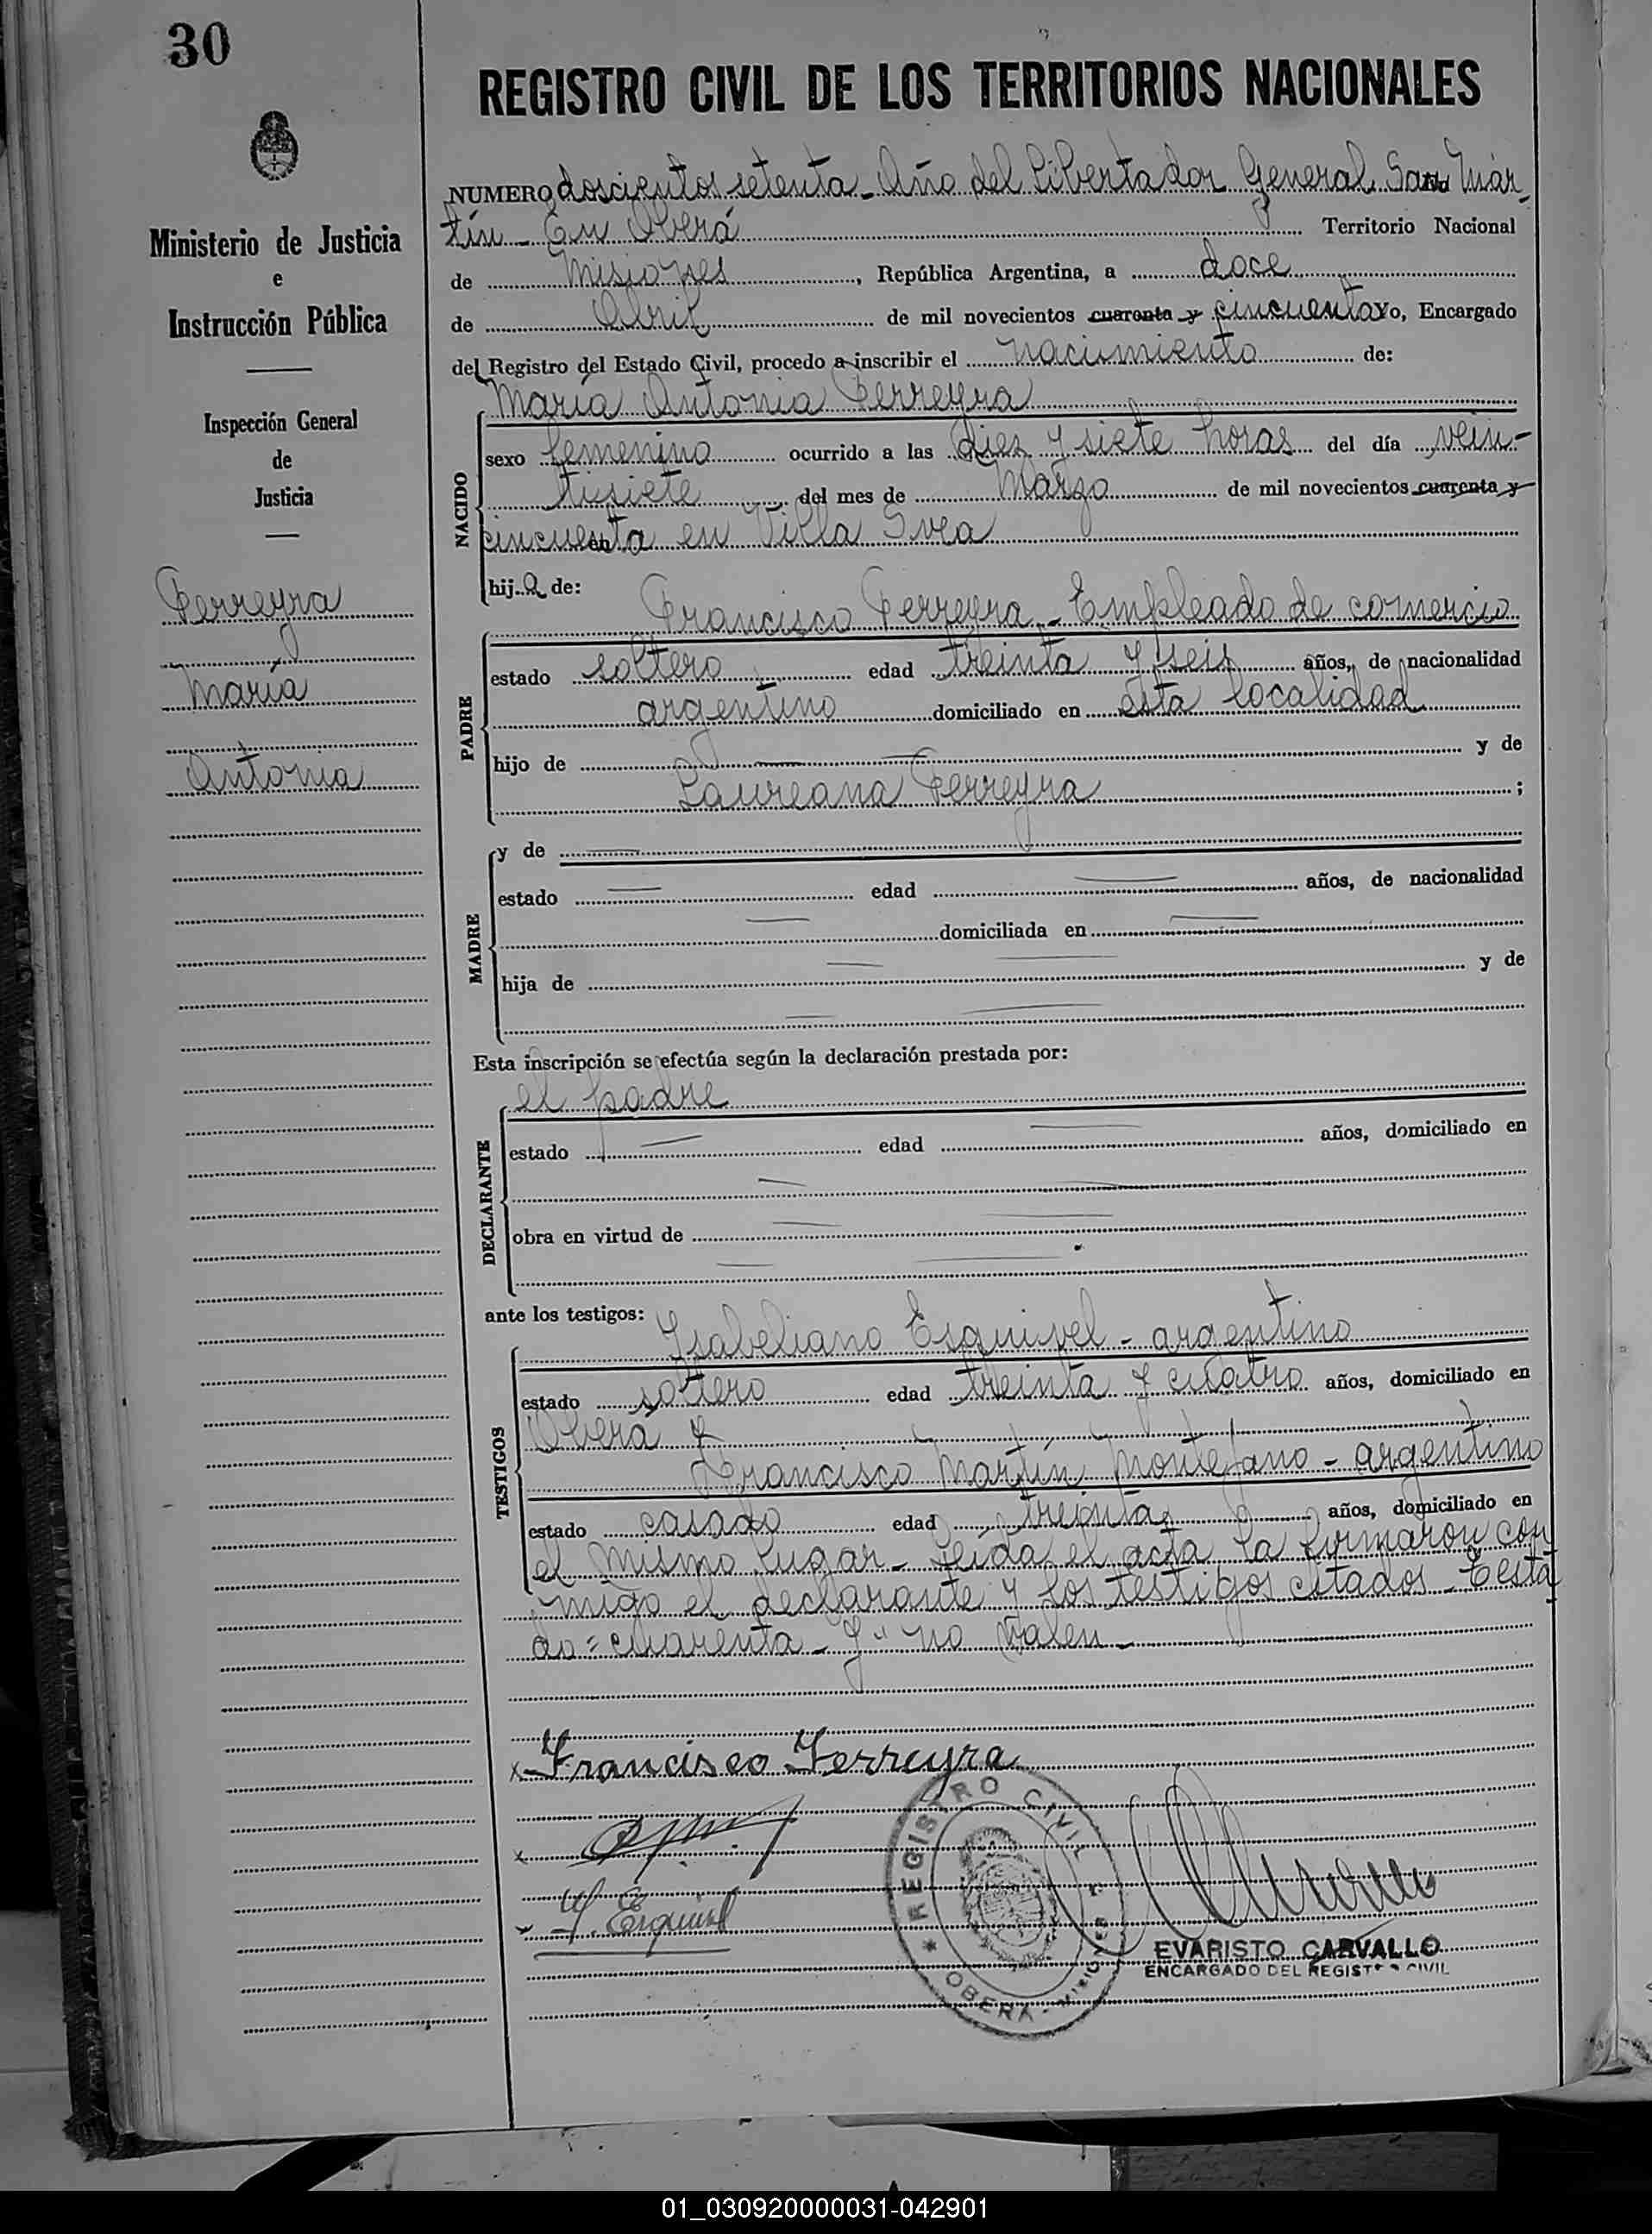 30
REGISTRO CIVIL DE LOS TERRITORIOS NACIONALES
Ministerio de Justicia
e
Instrucción Pública
Inspección General
de
Justicia
Ferreyra
María
Antonia
NUMERO doscientos setenta - Año del Libertador General San Mar-
tín - En Oberá Territorio Nacional
de Misiones, República Argentina, a doce
de Abril de mil novecientos cuarenta y cincuenta Yo, Encargado
del Registro del Estado Civil, procedo a inscribir el nacimiento de:
María Antonia Ferreyra
NACIDO
sexo femenino ocurrido a las diez y siete horas del día vein-
tisiete del mes de Marzo de mil novecientos cuarenta y
cincuenta en Villa Svea
hija de:
Francisco Ferreyra - Empleado de comercio
PADRE
estado soltero edad treinta y seis años, de nacionalidad
argentino domiciliado en esta localidad
hijo de y de
Laureana Ferreyra ;
MADRE
y de
estado edad años, de nacionalidad
domiciliada en
hija de y de
Esta inscripción se efectúa según la declaración prestada por:
el padre
DECLARANTE
estado edad años, domiciliado en
obra en virtud de
ante los testigos:
Ysabeliano Esquivel - argentino
TESTIGOS
estado soltero edad treinta y cuatro años, domiciliado en
Oberá y
Francisco Martín Montejano - argentino
estado casado edad treinta años, domiciliado en
el mismo lugar - Leída el acta la firmaron con
migo el declarante y los testigos citados - Testa
do = cuarenta - y " no valen -
x Francisco Ferreyra
x
Y. Esquivel
REGISTRO CIVIL
* OBERA - MISIONES *
EVARISTO CARVALLO
ENCARGADO DEL REGISTRO CIVIL
01_030920000031-042901